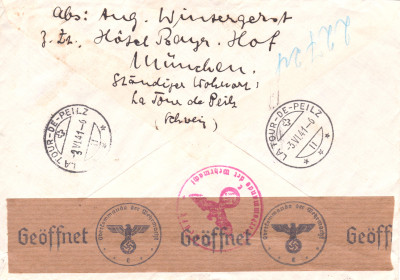 Abs: Aug. Wintergerst
z. Zt. Hôtel Bayr. Hof
München.
Ständiger Wohnort:
La Tour de Peilz
(Schweiz)
LA TOUR-DE-PEILZ
-3.VI.41-6
II
LA TOUR-DE-PEILZ
-3.VI.41-6
II
Oberkommando der Wehrmacht
Geöffnet
Oberkommando der Wehrmacht
e
Geöffnet
Oberkommando der Wehrmacht
e
Geöffnet